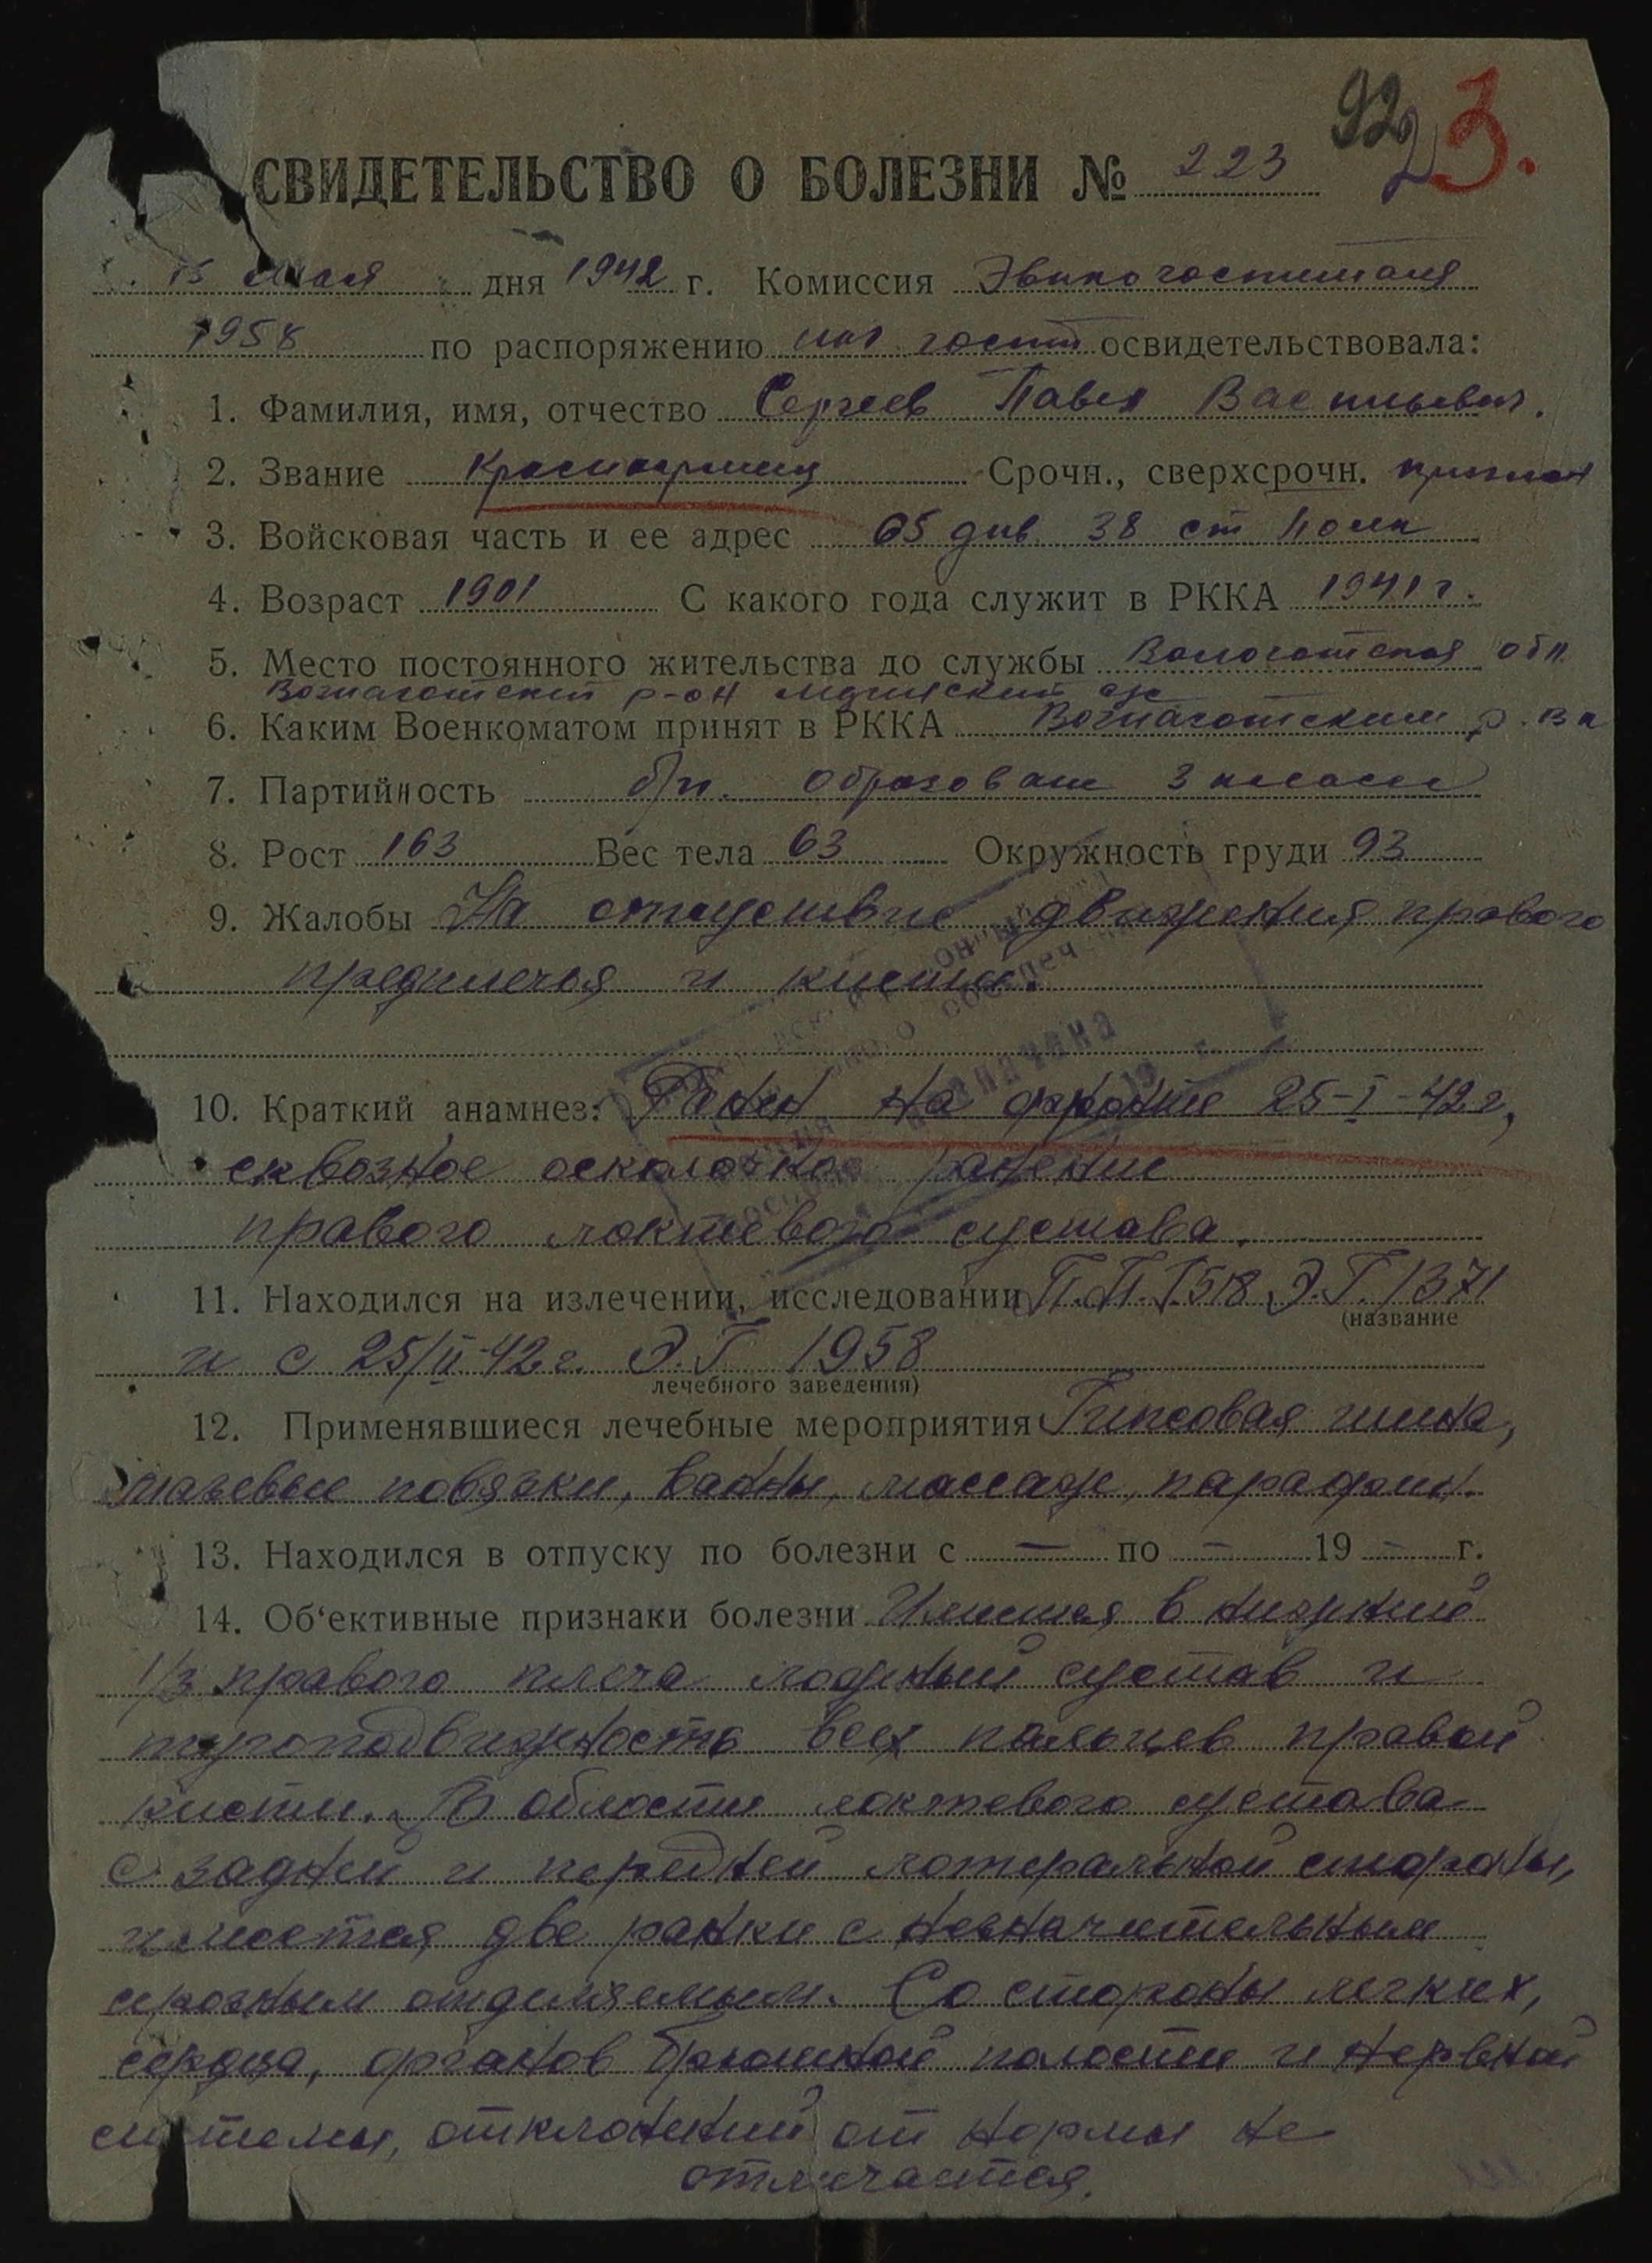 92 3.
СВИДЕТЕЛЬСТВО О БОЛЕЗНИ № 223
15 мая дня 1942 г. Комиссия Эвакогоспиталя
1958 по распоряжению нач госп освидетельствовала:
1. Фамилия, имя, отчество Сергеев Павел Васильевич.
2. Звание Красноармеец Срочн., сверхсрочн.
3. Войсковая часть и ее адрес 65 див 38 ст полк
4. Возраст 1901 С какого года служит в РККА 1941 г.
5. Место постоянного жительства до службы Вологотская обл.
р-он
6. Каким Военкоматом принят в РККА
7. Партийность б/п. образован 3 класса
8. Рост 163 Вес тела 63 Окружность груди 93
9. Жалобы На отсуствие движения правого
предплечья и кисти.
10. Краткий анамнез: Ранен на фронте 25-I-42 г,
сквозное осколочное ранение
правого локтевого сустава.
11. Находился на излечении, исследовании П.П.Г. 518 Э.Г. 1371
(название
и с 25/II-42 г. Э.Г 1958
лечебного заведения)
12. Применявшиеся лечебные мероприятия Гипсовая шина,
повязки, ванны, массаж, парафин.
13. Находился в отпуску по болезни с — по — 19 — г.
14. Об‘ективные признаки болезни Имеится в нижний
1/3 правого плеча ложный сустав и
тугоподвижность всех пальцев правой
кисти. В области локтевого сустава
с задней и передней латеральной стороны,
имеется две ранки с незначительным
отделяемым. Со стороны легких,
сердца, органов брюшной полости и нервной
системы, отклонений от нормы не
отмечается.